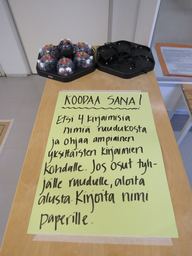 KOODAA SANA!
Etsi 4 kirjaimisia
nimiä ruudukosta
ja ohjaa ampiainen
yksittäisten kirjaimien
kohdalle. Jos osut tyh-
jälle ruudulle, aloita
alusta. Kirjoita nimi
paperille.